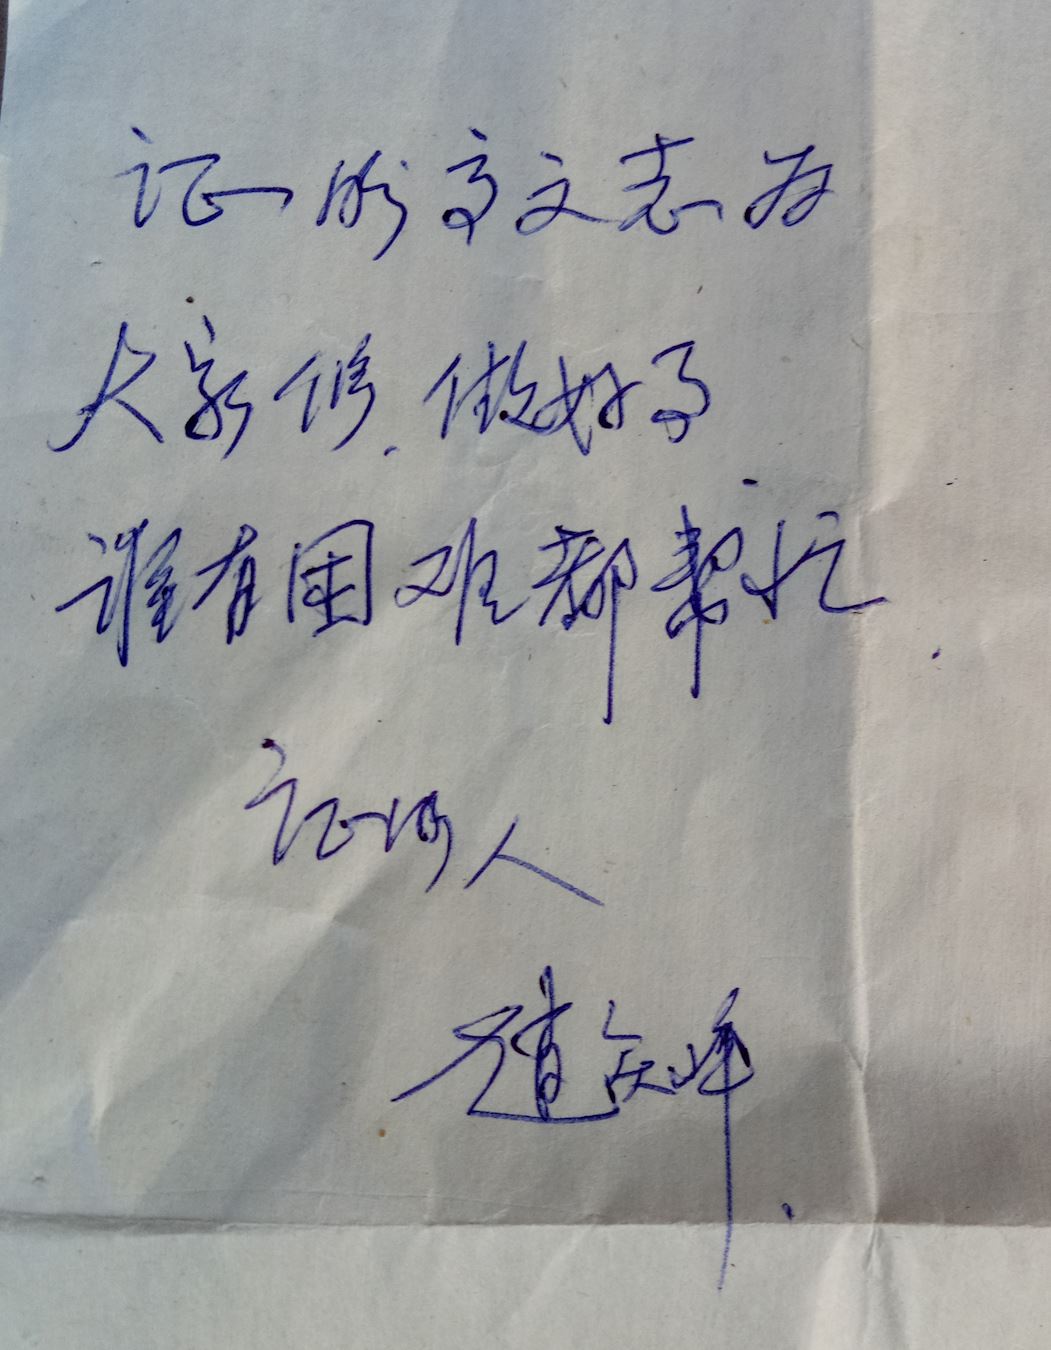 证明高文志为
大家修.做好了
谁有困难都帮忙.
证明人
赵庆峰.